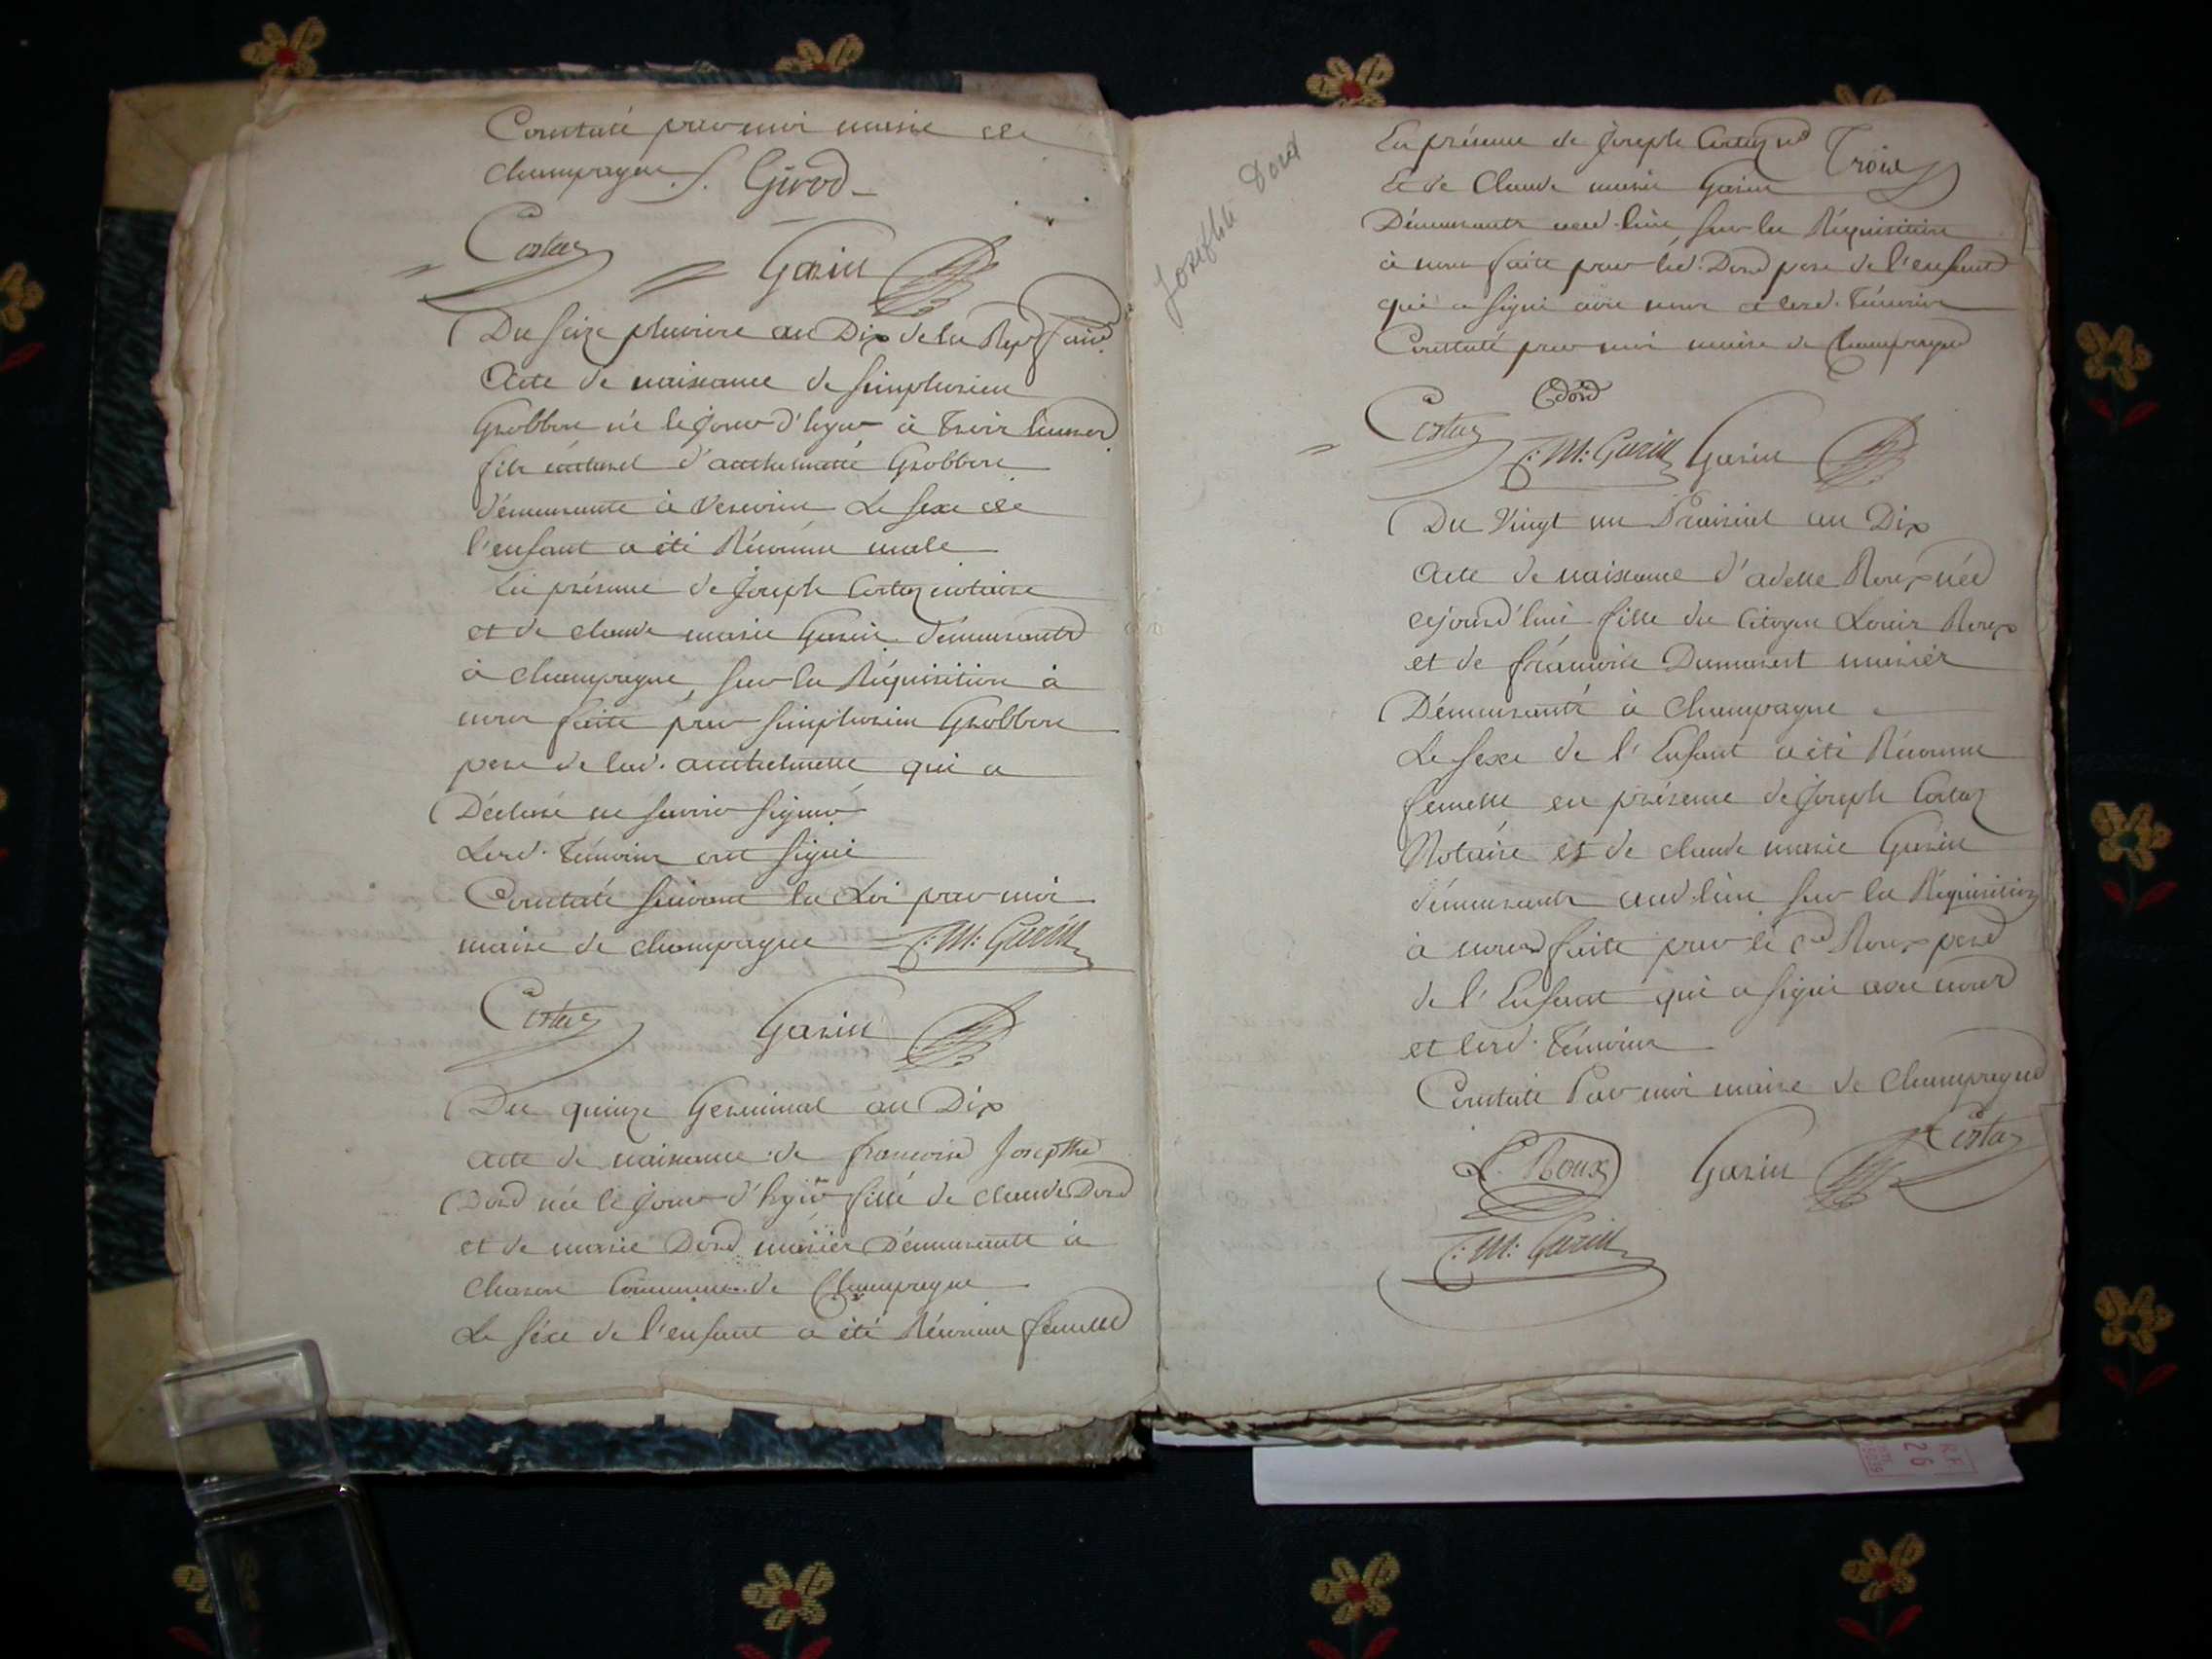 Constaté par moi maire de
champagne f. Girod
Costaz Garin
Du seize pluviose an Dix de la Rep. franc.
Acte de naissance de simphorien
Grobbon né le jour d'hyer à trois heures
fils naturel d'anthelmette Grobbon
démeurante à Le sexe de
l'enfant a été Réconnu male
En présence de Joseph Costaz notaire
et de claude marie Garin démeurants
à champagne, sur la Réquisition à
nous faitte par simphorien Grobbon
pere de lad. anthelmette qui a
Déclaré ne savoir signer
Lesd. témoins ont signé
Constaté suivant la Loi par moi
maire de champagne C: M: Garin
Costaz Garin
Du quinze Germinal an Dix
acte de naissance de francoise Josephte
Dord née le jour d'hyer fille de claude Dord
et de marie Dord mariés Démeurants à
commune de Champagne
Le séxe de l'enfant a été Réconnu femelle
Josephte Dord
En présence de Joseph Costaz
Trois
et de Claude marie Garin
Démeurants aud. lieu, sur la Réquisition
à nous faitte par led. Dord pere de l'enfant
qui a signé avec nous et lesd. témoins
Constaté par moi maire de Champagne
C dord
Costaz C: M: Garin Garin
Du Vingt un Prairial an Dix
Acte de naissance d'adelle Roux née
cejourd'hui fille du Citoyen Louis Roux
et de francoise Dumarest mariés
Démeurants à Champagne
Le sexe de l'Enfant a été Réconnu
femelle en présence de Joseph Costaz
Notaire et de claude marie Garin
démeurants aud. lieu sur la Réquisition
à nous faite par le Roux pere
de l'Enfant qui a signé avec nous
et lesd. témoins
Constaté Par moi maire de Champagne
L. Roux Garin Costaz
C: M: Garin
R.F.
26